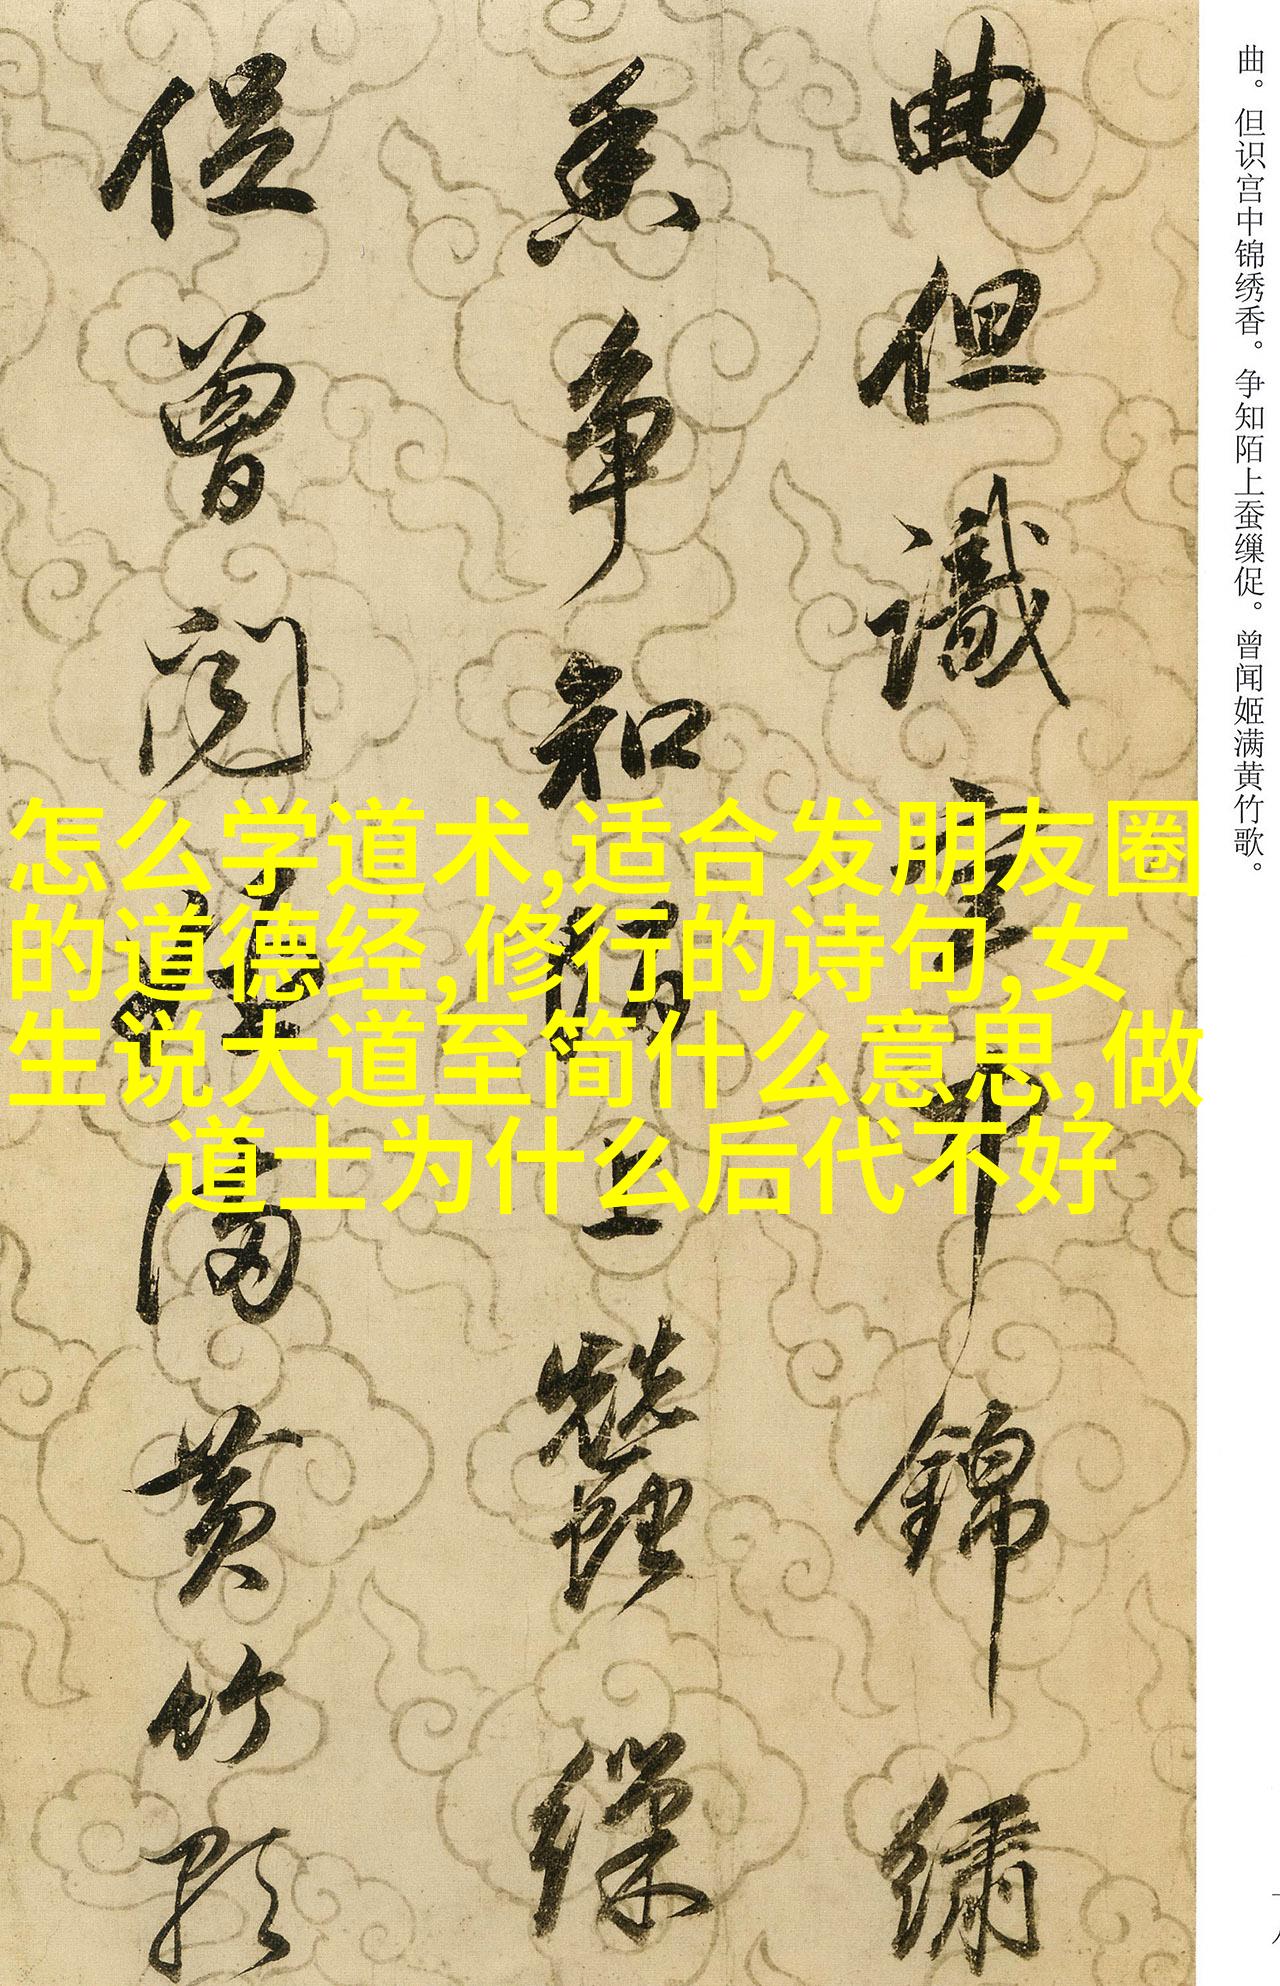 曲。但识宫中锦绣香。争知陌上蚕缫促。曾闻姬满黄竹歌。
曲但識宮中錦繡
香争知陌上蠶繅
促曾闻姬满黄竹歌
怎么学道术,适合发朋友圈
的道德经,修行的诗句,女
生说大道至简什么意思,做
道士为什么后代不好